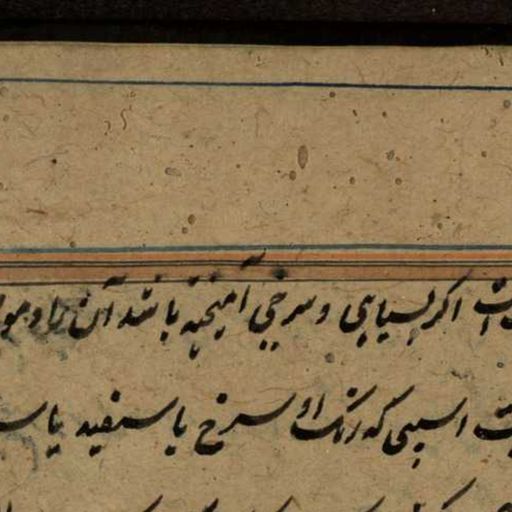 است اگر بسیاهی و سرخی آمیخته باشد آن را و مو
اسپی که رنگ او سرخ یا سفید یا